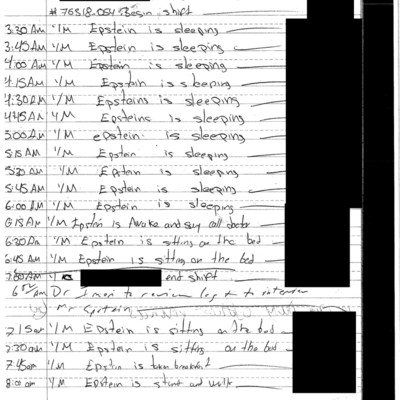 # 76318-054 Begin shift
3:30 AM I/M Epstein is sleeping
3:45 AM I/M Epstein is sleeping
4:00 AM I/M Epstein is sleeping
4:15 AM I/M Epstein is sleeping
4:30 AM I/M Epsteins is sleeping
4:45 AM I/M Epsteins is sleeping
5:00 AM I/M epstein is sleeping
5:15 AM I/M Epstein is sleeping
5:30 AM I/M Epstein is sleeping
5:45 AM I/M Epstein is sleeping
6:00 AM I/M Epstein is sleeping
6:15 AM I/M Epstein is Awake and say call doctor
6:30 AM I/M Epstein is sitting on the bed
6:45 AM I/M Epstein is sitting on the bed
7:00 AM end shift
Dr to review log + to
Mr Epstein
7:15 am I/M Epstein is sitting on the bed
7:30 am I/M Epstein is sitting on the bed
7:45 am I/M Epstein is breakfast
8:00 am I/M Epstein is and